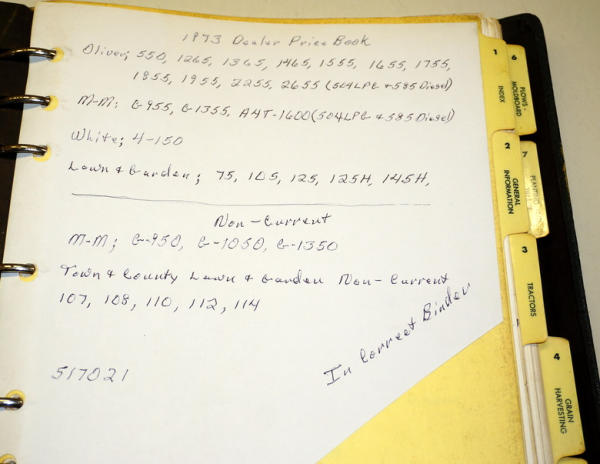 1973 Dealer Price Book
Oliver; 550, 1265, 1365, 1465, 1555, 1655, 1755,
1855, 1955, 2255, 2655 (504LPG & 585 Diesel)
M-M: G-955, G-1355, A4T-1600 (504LPG & 585 Diesel)
White; 4-150
Lawn & Garden; 75, 105, 125, 125H, 145H,
Non-Current
M-M; G-950, G-1050, G-1350
Town & County Lawn & Garden Non-Current
107, 108, 110, 112, 114
In Correct Binder
517021
1
INDEX
6
PLOWS -
MOLDBOARD
2
GENERAL
INFORMATION
7
PLANTING
3
TRACTORS
4
GRAIN
HARVESTING